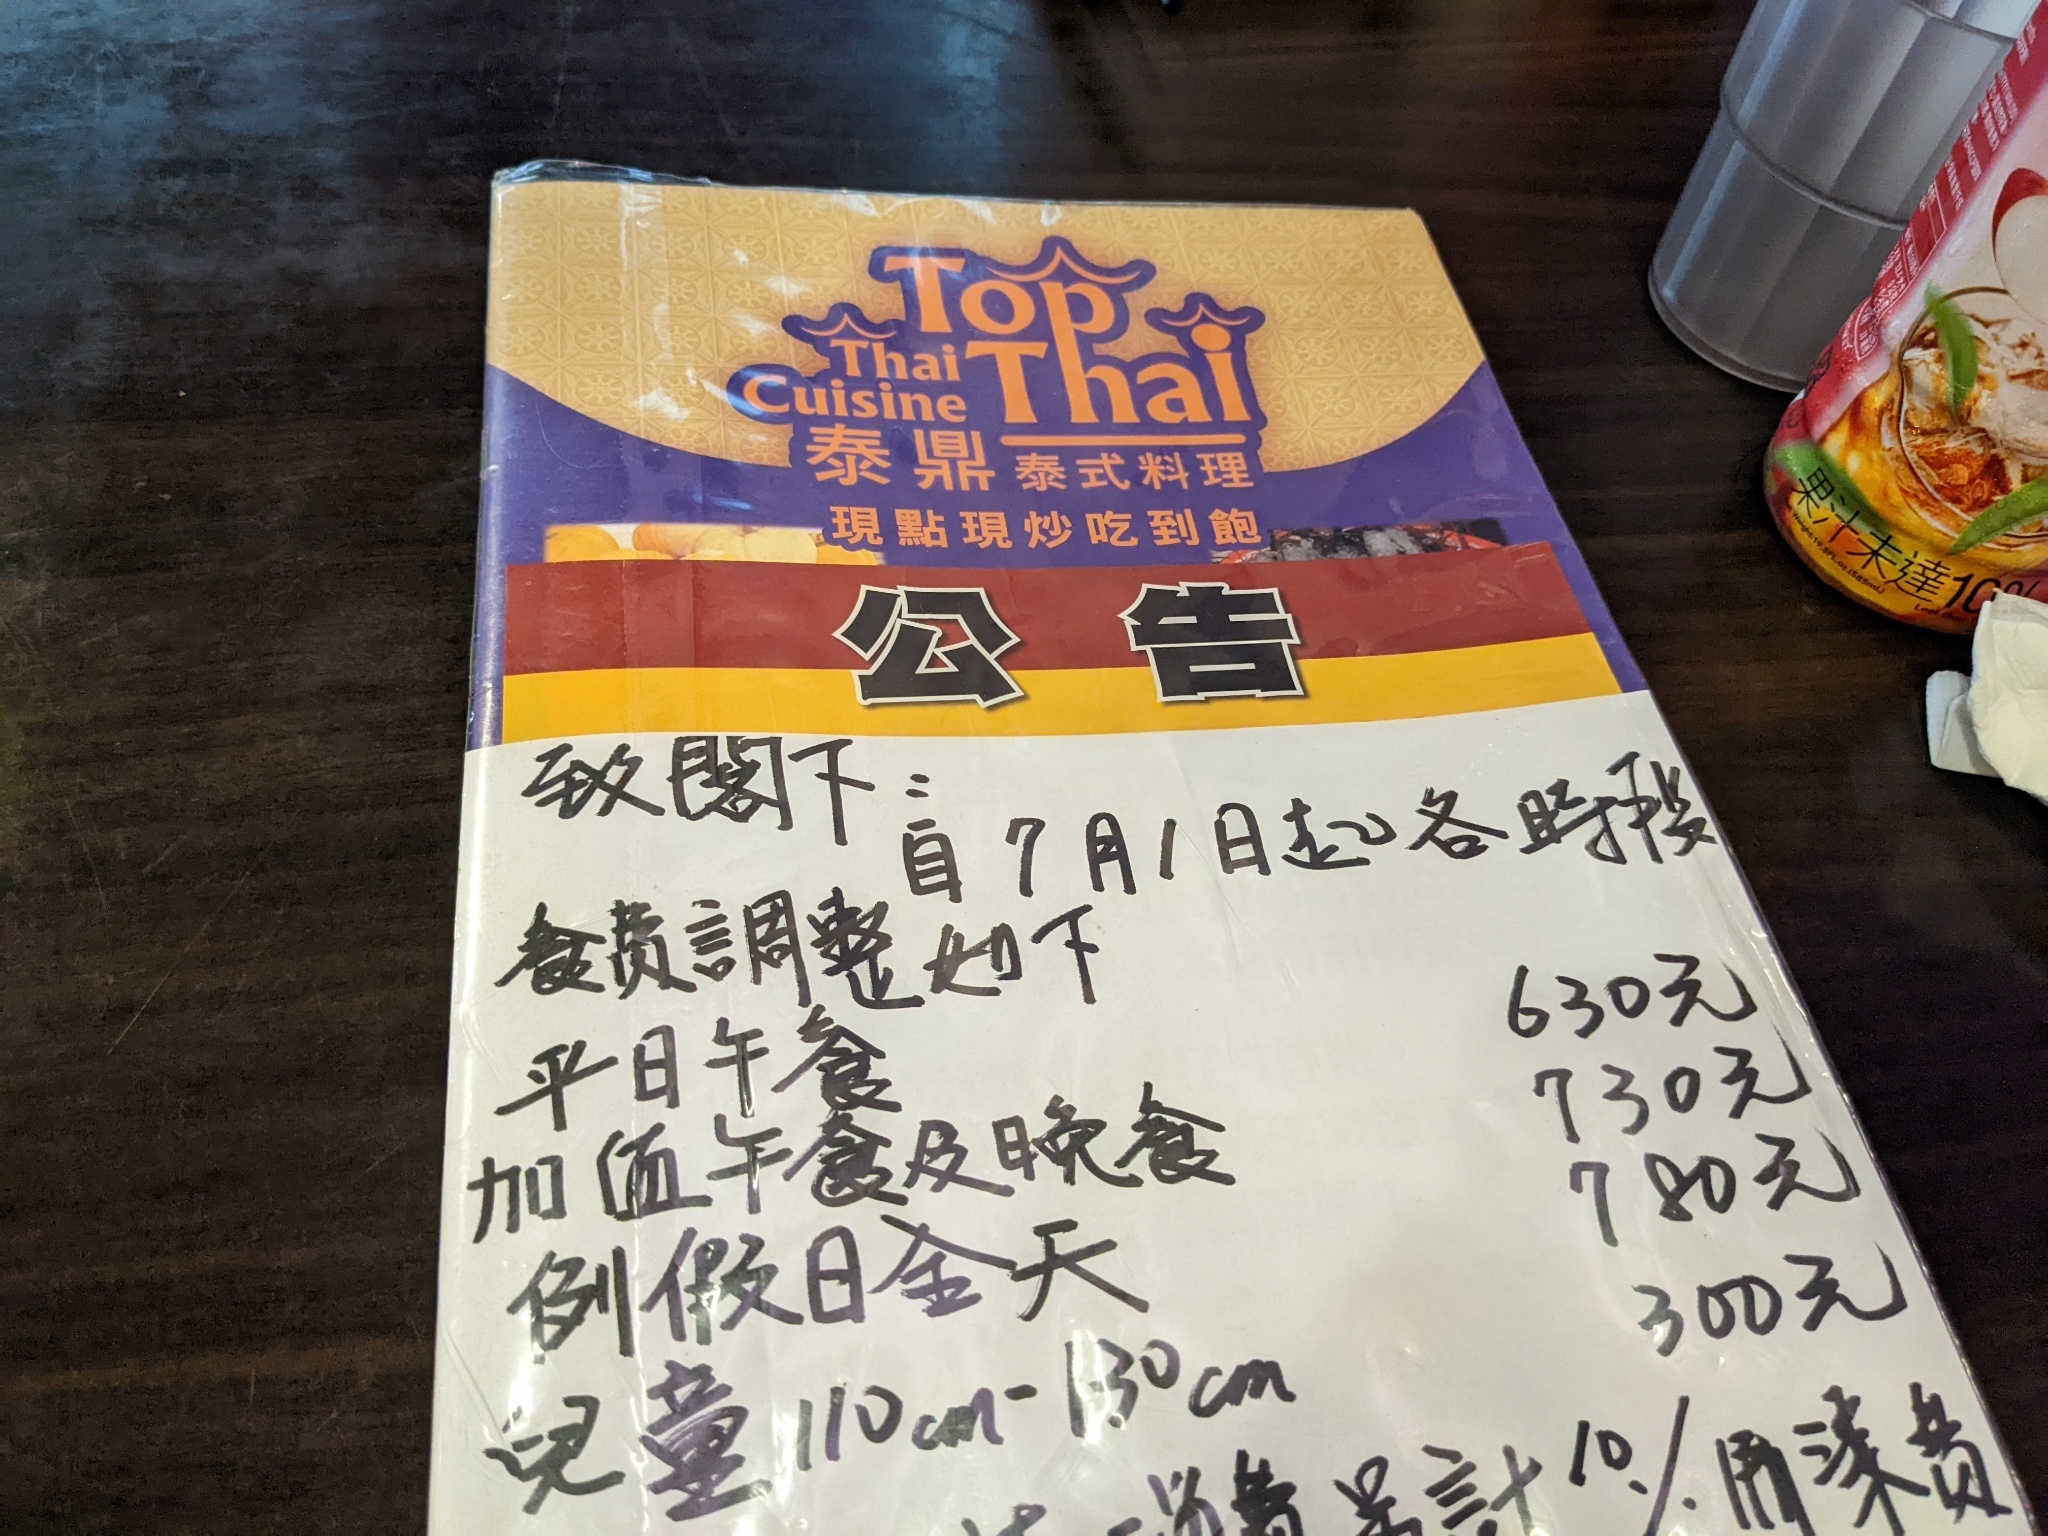 Top
Thai
Thai
Cuisine
泰鼎 泰式料理
現點現炒吃到飽
公告
致閣下:
自7月1日起各時段
餐費調整如下
平日午餐 630元
加值午餐及晚餐 730元
例假日全天 780元
兒童110cm-130cm 300元
消費另計10%用湊費
果汁未達10%